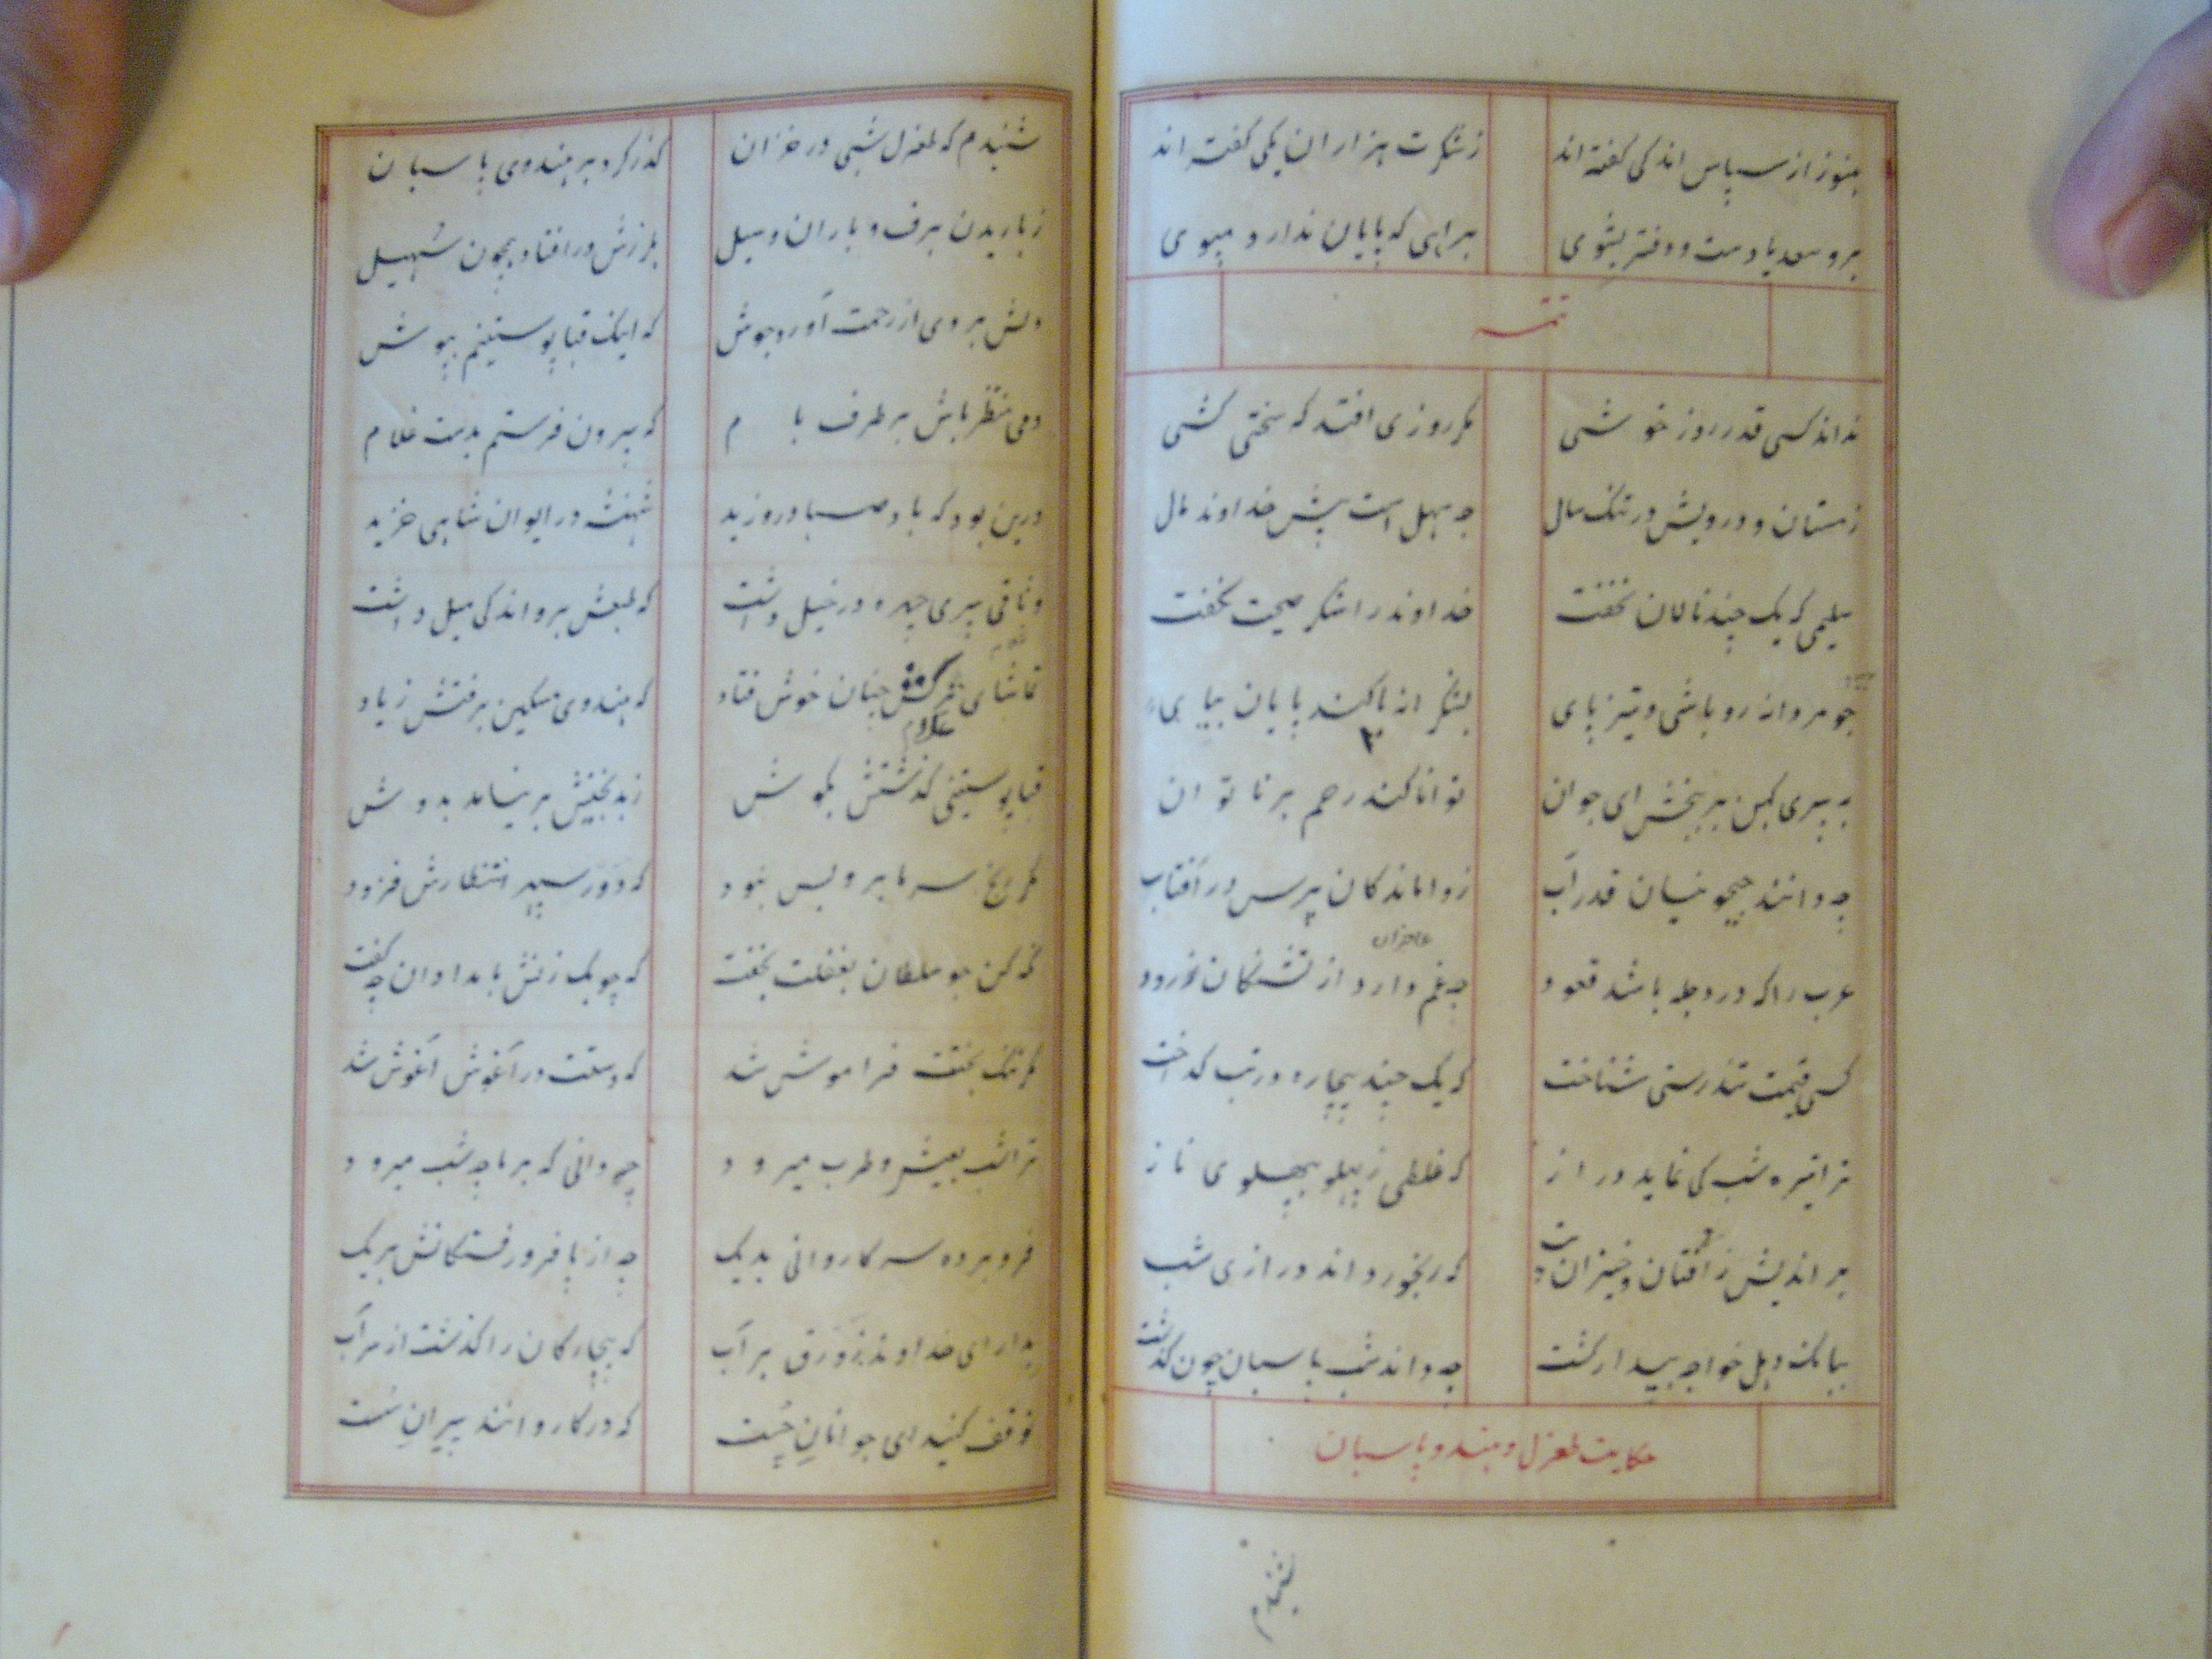 هنوز از سپاس اندکی گفته اند زشکرت هزاران یکی گفته اند
برو سعدیا دست و دفتر بشوی براهی که پایان ندارد مپوی
تتمه
نداند کسی قدر روز خوشی مکر روزی افتد که سختی کشی
زمستان و درویش در تنک سال چه سهل است پیش خداوند مال
سلیمی که یک چند نالان نخفت خداوند را شکر صحت نکفت
چو مردانه رو باشی و تیز پای بشکرانه با کند پایان بپای
به پیری کهن بر ببخش ای جوان توانا کند رحم بر ناتوان
چه دانند جیحونیان قدر آب زواماندکان پرس در آفتاب
عرب را که در دجله باشد قعود چه غم دارد از تشنکان زرود
عاجزان
کسی قیمت تندرستی شناخت که یک چند بیچاره در تب کداخت
ترا تیره شب کی نماید دراز که غلطی زپهلو بپهلوی ناز
براندیش ز افتان و خیزان تب که رنجور داند درازی شب
ببانک دهل خواجه بیدار کشت چه داند شب پاسبان چون کذشت
حکایت طغرل و هندو پاسبان
شنیدم
شنیدم که طغرل شبی در خزان کذر کرد بر هندوی پاسبان
زباریدن برف و باران و سیل بلرزش در افتاد همچون سهیل
دلش بر وی از رحمت آورد جوش که اینک قبا پوستینم بپوش
دمی منتظر باش بر طرف بام که بیرون فرستم بدست غلام
درین بود که باد صبا در وزید شهنشه در ایوان شاهی خزید
وثاقی پری چهره در خیل داشت که طبعش برو اندکی میل داشت
تماشای ترکش چنان خوش فتاد که هندوی مسکین برفتش زیاد
غلام
قبا پوستینی کذشتش بکوش زبدبختیش بر نیامد بدوش
مکر رنج سرما برو بس نبود که دور سپهر انتظارش فزود
نکه کن چو سلطان بغفلت بخفت که چوبک زنش بامدادان چه کفت
مکر نیک بختت فراموش شد که دستت در آغوش آغوش شد
ترا شب بعیش و طرب میرود چه دانی که بر ما چه شب میرود
فرو برده سر کاروانی بدیک چه از پا فرو رفتکانش بریک
بدار ای خداوند زورق بر آب که بیچارکان را کذشت از سر آب
توقف کنید ای جوانان چست که در کاروانند پیران سست